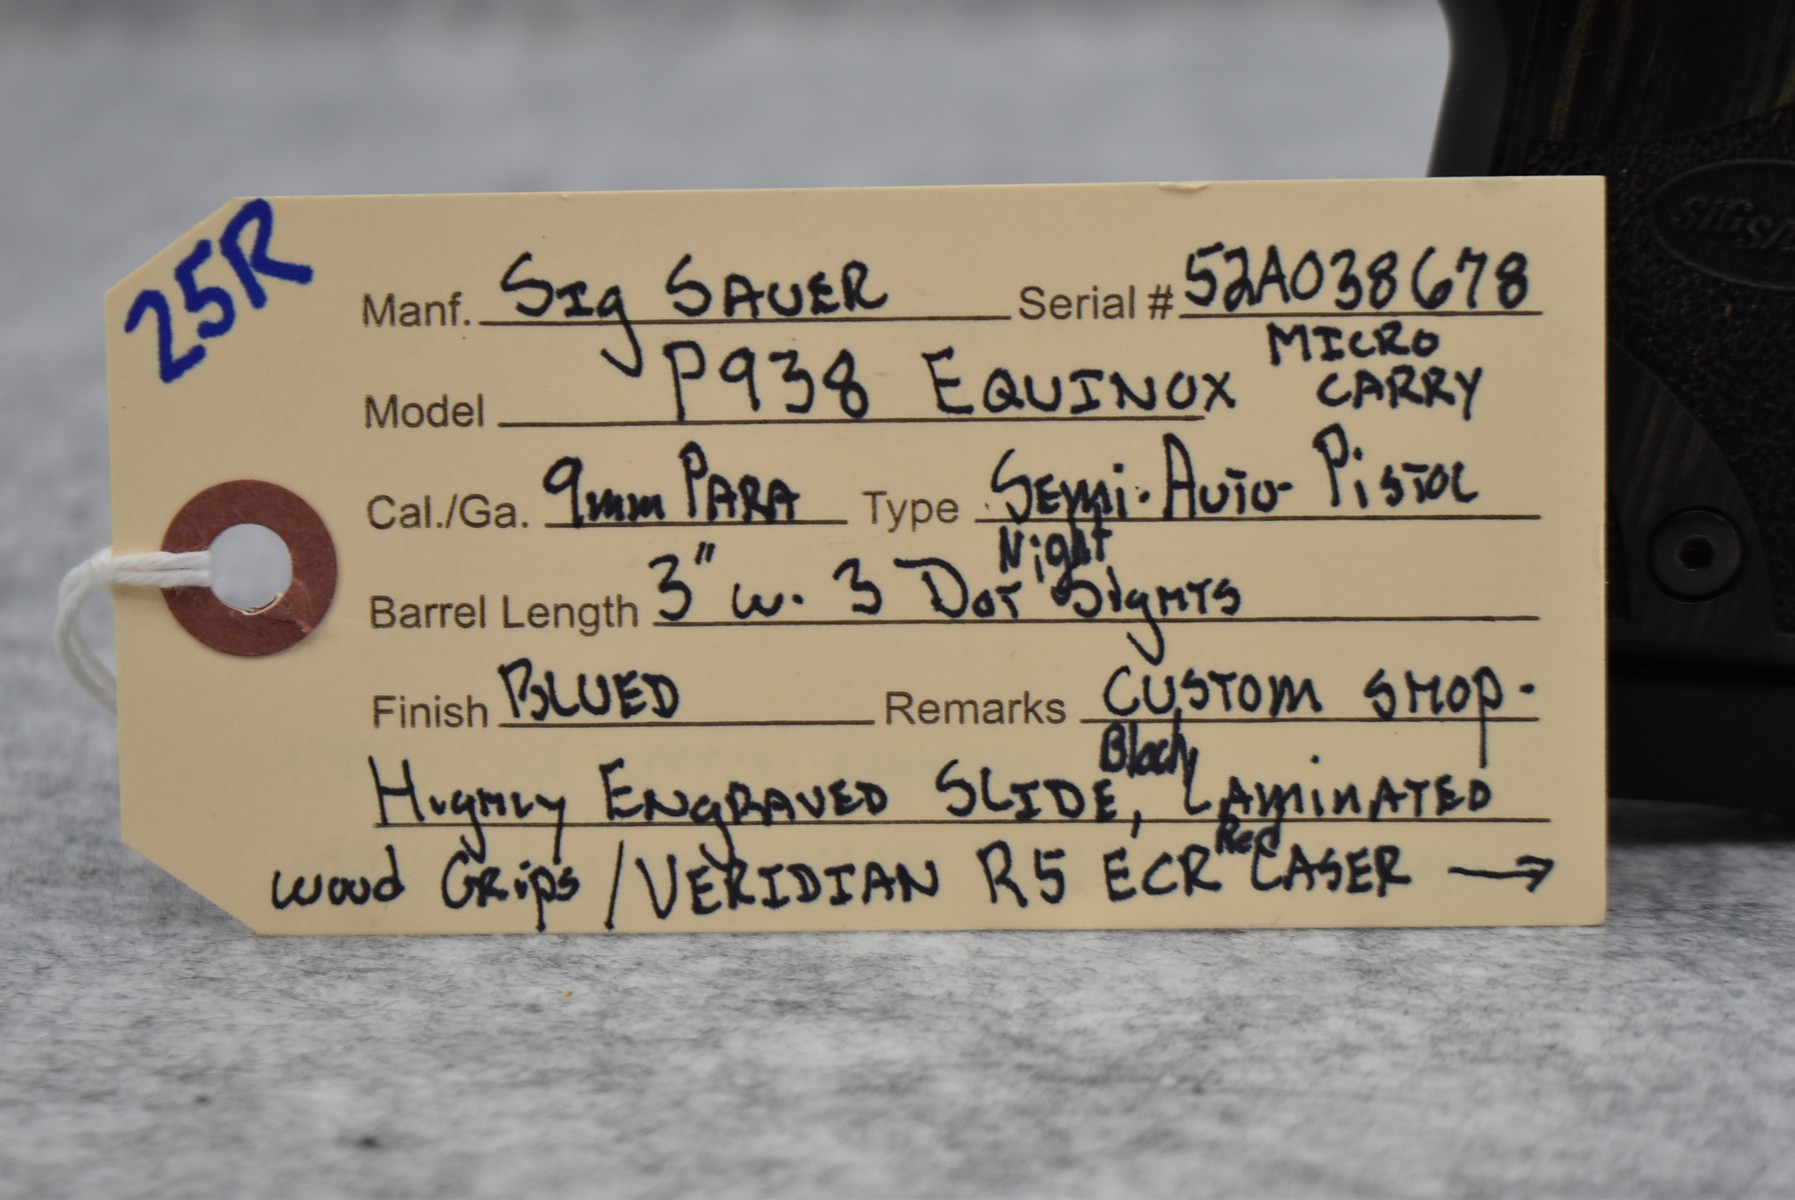 25R
Manf. Sig SAUER Serial # 52A038678
Model P938 EQUINOX MICRO CARRY
Cal./Ga. 9mm PARA Type Semi-Auto Pistol
Barrel Length 3" w. 3 Dot Night Sights
Finish BLUED Remarks CUSTOM SHOP-
HIGHLY ENGRAVED SLIDE, Black LAMINATED
wood Grips / VERIDIAN R5 ECR Red LASER →
SIGSA